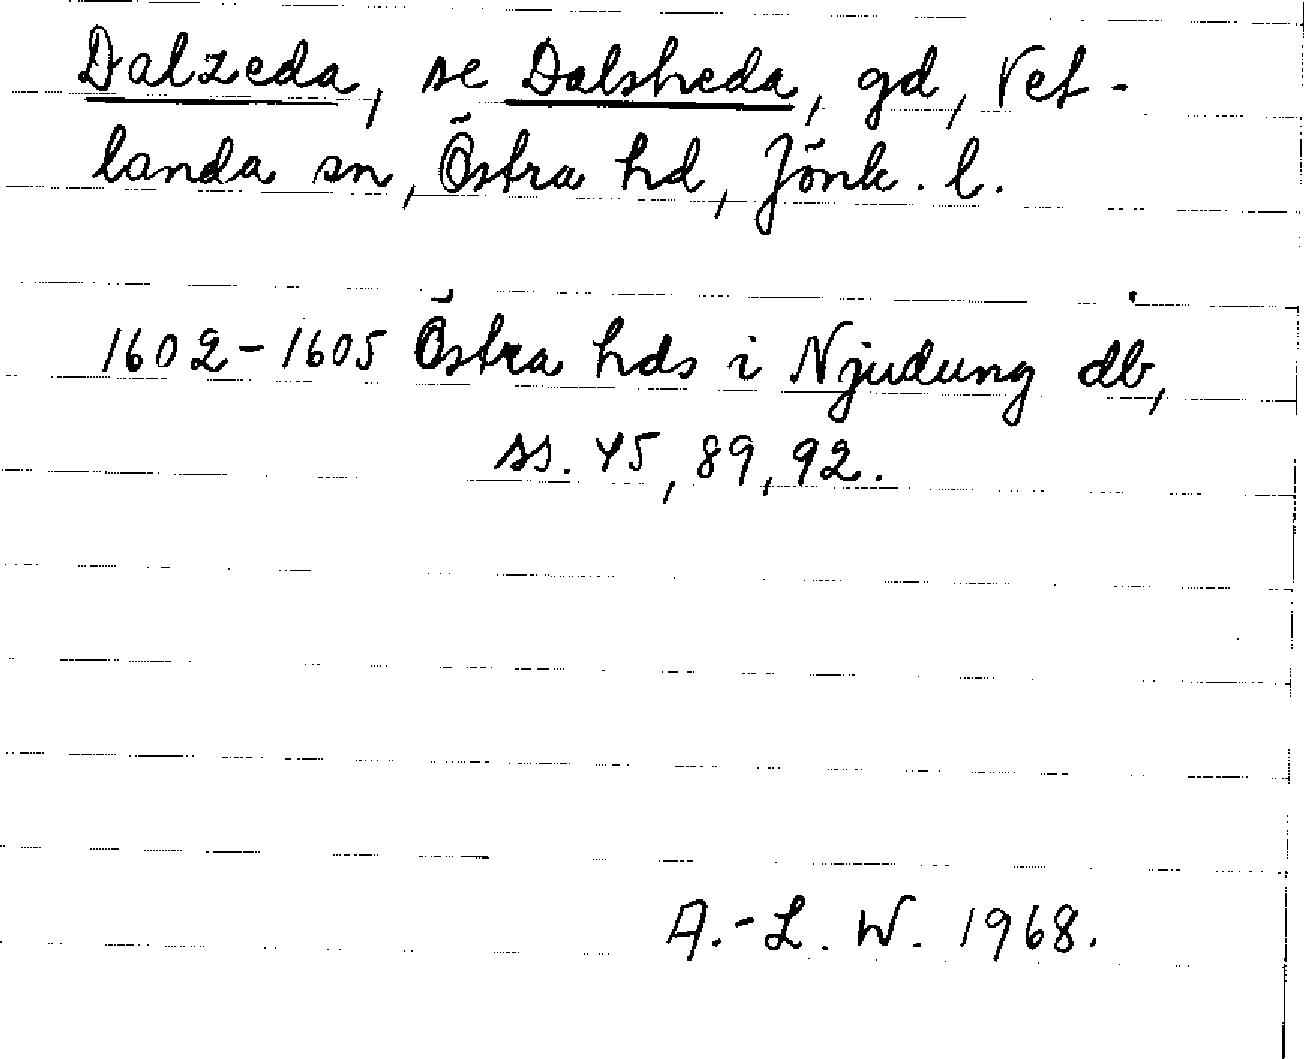 Dalzeda, se Dalsheda, gd, Vet-
landa sn, Östra hd, Jönk. l.
1602-1605 Östra hds i Njudung db,
ss. 45, 89, 92.
A.-L. W. 1968.